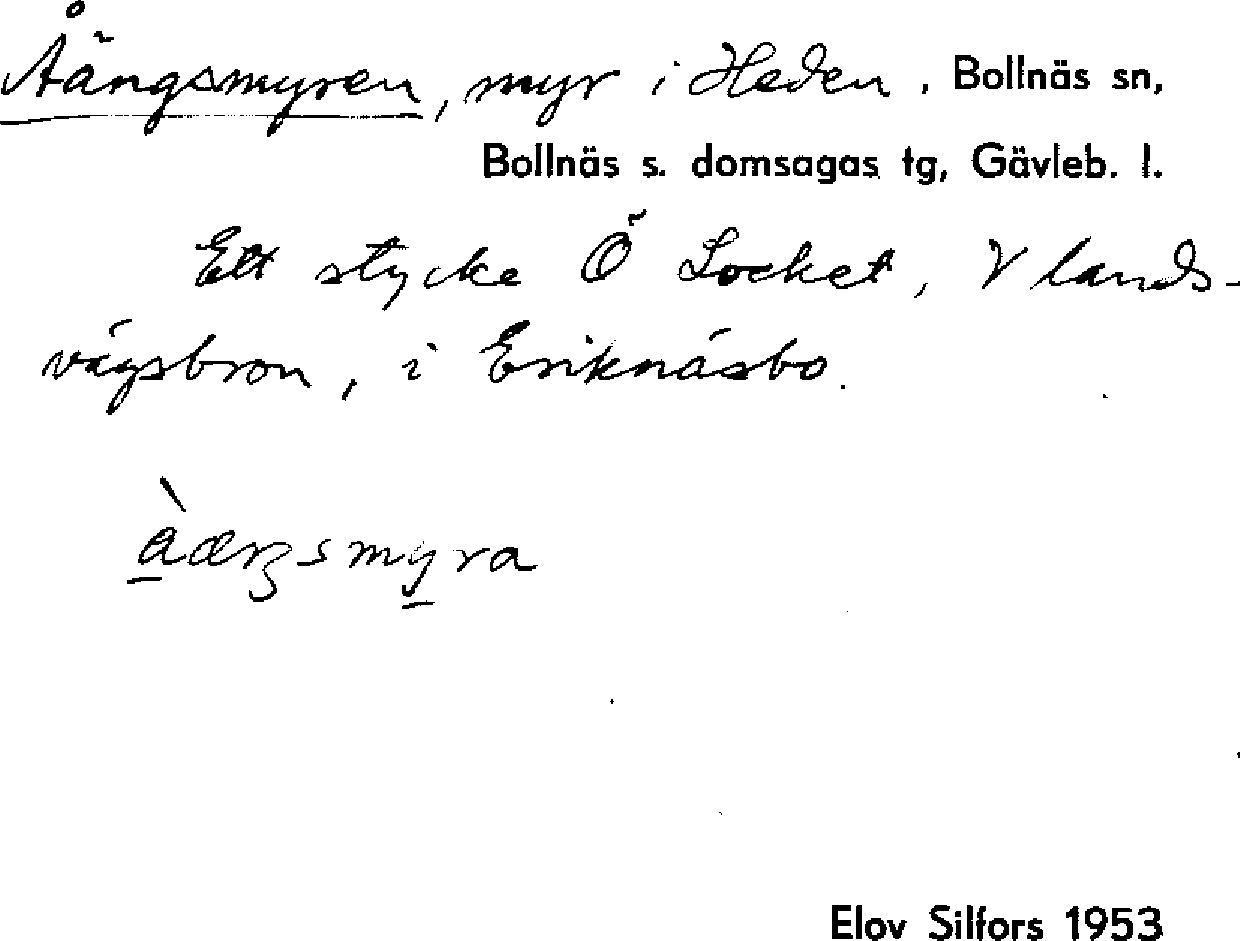 Åängsmyren, myr i Heden, Bollnäs sn,
Bollnäs s. domsagas tg, Gävleb. l.
Ett stycke Ö Locket, V lands-
vägsbron, i Eriknäsbo.
à̠æŋsmy̠ra
Elov Silfors 1953